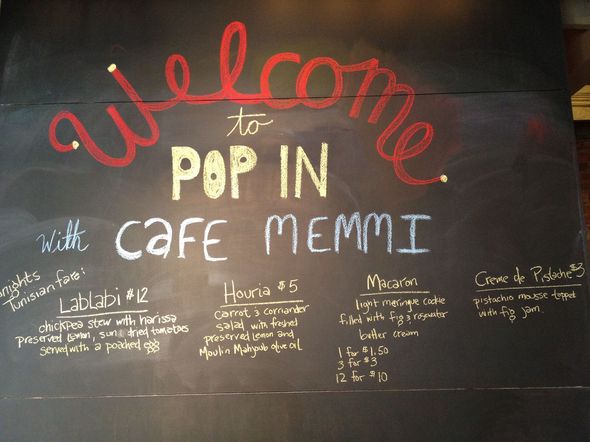 Welcome
to
POP IN
with CAFE MEMMI
onights
Tunisian fare:
Lablabi $12
chickpea stew with harissa
preserved lemon, sun dried tomatoes
served with a poached egg
Houria $5
Carrot & corriander
salad with freshed
preserved lemon and
Moulin Mahjoub olive oil
Macaron
light meringue cookie
filled with fig & rosewater
butter cream
1 for $1.50
3 for $3
12 for $10
Creme de Pistache $3
pistachio mousse topped
with fig jam.